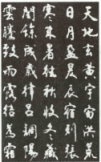 天地玄黃宇宙洪荒
日月盈昃辰宿列張
寒來暑往秋收冬藏
閏餘成歲律呂調陽
雲騰致雨露結為霜